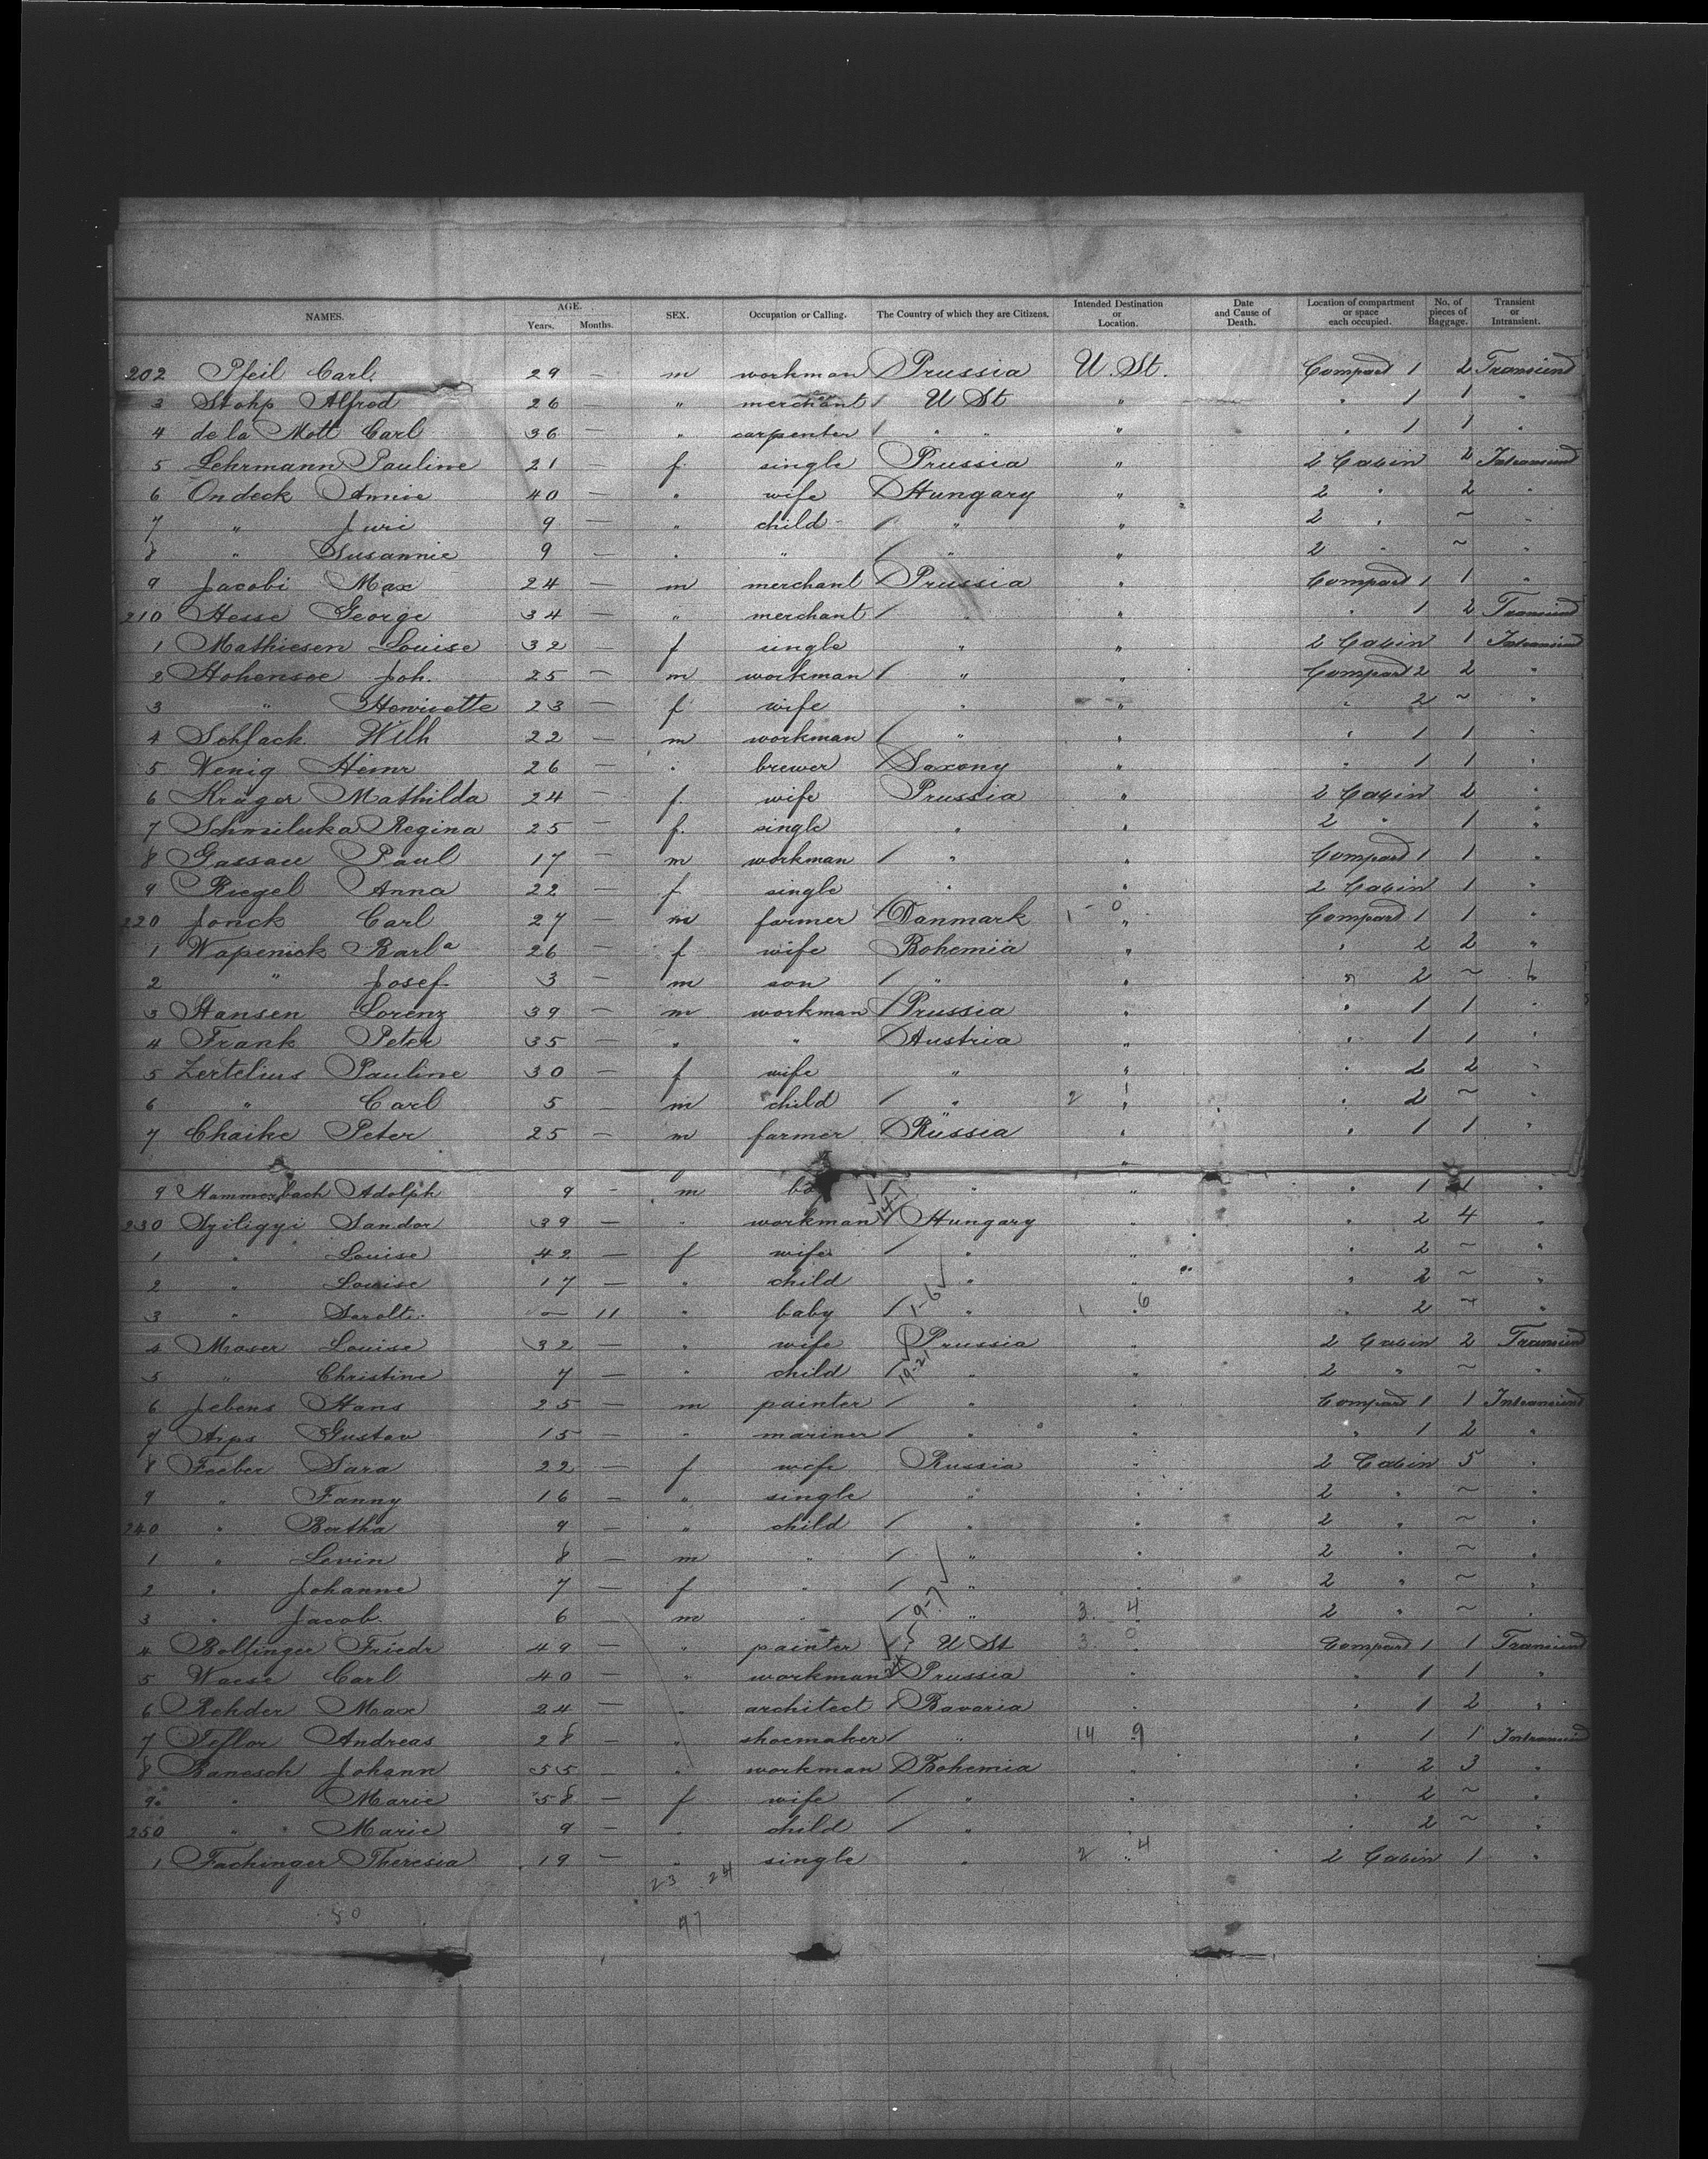 NAMES. AGE. Years. Months. SEX. Occupation or Calling. The Country of which they are Citizens. Intended Destination or Location. Date and Cause of Death. Location of compartment or space each occupied. No. of pieces of Baggage. Transient or Intransient.
202 Pfeil Carl 29 — m workman / Prussia U. St. Compard 1 2 Transiend
3 Stohp Alfred 26 — " merchant / U St " " 1 1 "
4 de la Mott Carl 36 — " carpenter / " " " " 1 1 "
5 Lehrmann Pauline 21 — f. single Prussia " 2 Cabin 2 Intransiend
6 Ondeck Annie 40 — " wife / Hungary " 2 " 2 "
7 " Juri 9 — " child / " " 2 " ~ "
8 " Susannie 9 — " " / " " 2 " ~ "
9 Jacobi Max 24 — m merchant / Prussia " Compard 1 1 "
210 Hesse George 34 — " merchant / " " " 1 2 Transiend
1 Mathiesen Louise 32 — f single " " 2 Cabin 1 Intransiend
2 Hohensee Joh. 25 — m workman / " " Compard 2 2 "
3 " Henriette 23 — f wife " " " 2 ~ "
4 Schlack Wilh 22 — m workman / " " " 1 1 "
5 Wenig Heinr 26 — " brewer / Saxony " " 1 1 "
6 Krüger Mathilda 24 — f. wife Prussia " 2 Cabin 2 "
7 Regina 25 — f. single " " 2 " 1 "
8 Gassau Paul 17 — m workman / " " Compard 1 1 "
9 Riegel Anna 22 — f single " " 2 Cabin 1 "
220 Jonck Carl 27 — m farmer / Danmark 1 - 0 " Compard 1 1 "
1 Wapenick Barla 26 — f wife Bohemia " " 2 2 "
2 " Josef 3 — m son / " " " 2 ~ "
3 Hansen Lorenz 39 — m workman / Prussia " " 1 1 "
4 Frank Peter 35 — " " / Austria " " 1 1 "
5 Zertelius Pauline 30 — f wife " " " 2 2 "
6 " Carl 5 — m child / " 2 1 " " 2 ~ "
7 Chaike Peter 25 — m farmer / Russia " " 1 1 "
9 Hammersbach Adolph 9 - m " " " 1 1 "
230 Sziligyi Sandor 39 — " workman / Hungary " " 2 4 "
1 " Louise 42 — f wife / " " " 2 ~ "
2 " Louise 17 — " child " " " 2 ~ "
3 " — 11 " baby / 1-6 " 1 6 " 2 ~ "
4 Moser Louise 32 — " wife Prussia " 2 Cabin 2 Transiend
5 " Christine 7 — " child / 19-21 " " 2 " ~ "
6 Jebens Hans 25 — m painter / " " Compard 1 1 Intransiend
7 Arps Gustav 15 — " mariner / " " " 1 2 "
8 Faeber Sara 22 — f wife Russia " 2 Cabin 5 "
9 " Fanny 16 — " single " " 2 " ~ "
240 " Bertha 9 — " child / " " 2 " ~ "
1 " Levin 8 — m " / " " 2 " ~ "
2 " Johanne 7 — f " / " " 2 " ~ "
3 " Jacob 6 — m " / 9-7 " 3. 4 2 " ~ "
4 Friedr 49 — " painter / U St 3. 0 Compard 1 1 Transiend
5 Waese Carl 40 — " workman / Prussia " " 1 1 "
6 Rehder Max 24 — " architect / Bavaria " " 1 2 "
7 Teflor Andreas 28 — " shoemaker / " 14 9 " 1 1 Intransiend
8 Banesch Johann 55 — " workman / Bohemia " " 2 3 "
9 " Marie 58 — f wife / " " " 2 ~ "
250 " " Marie 9 — " child / " " " 2 ~ "
1 Fachinger Theresia 19 — " single " 2 4 2 Cabin 1 "
23 24
80 97